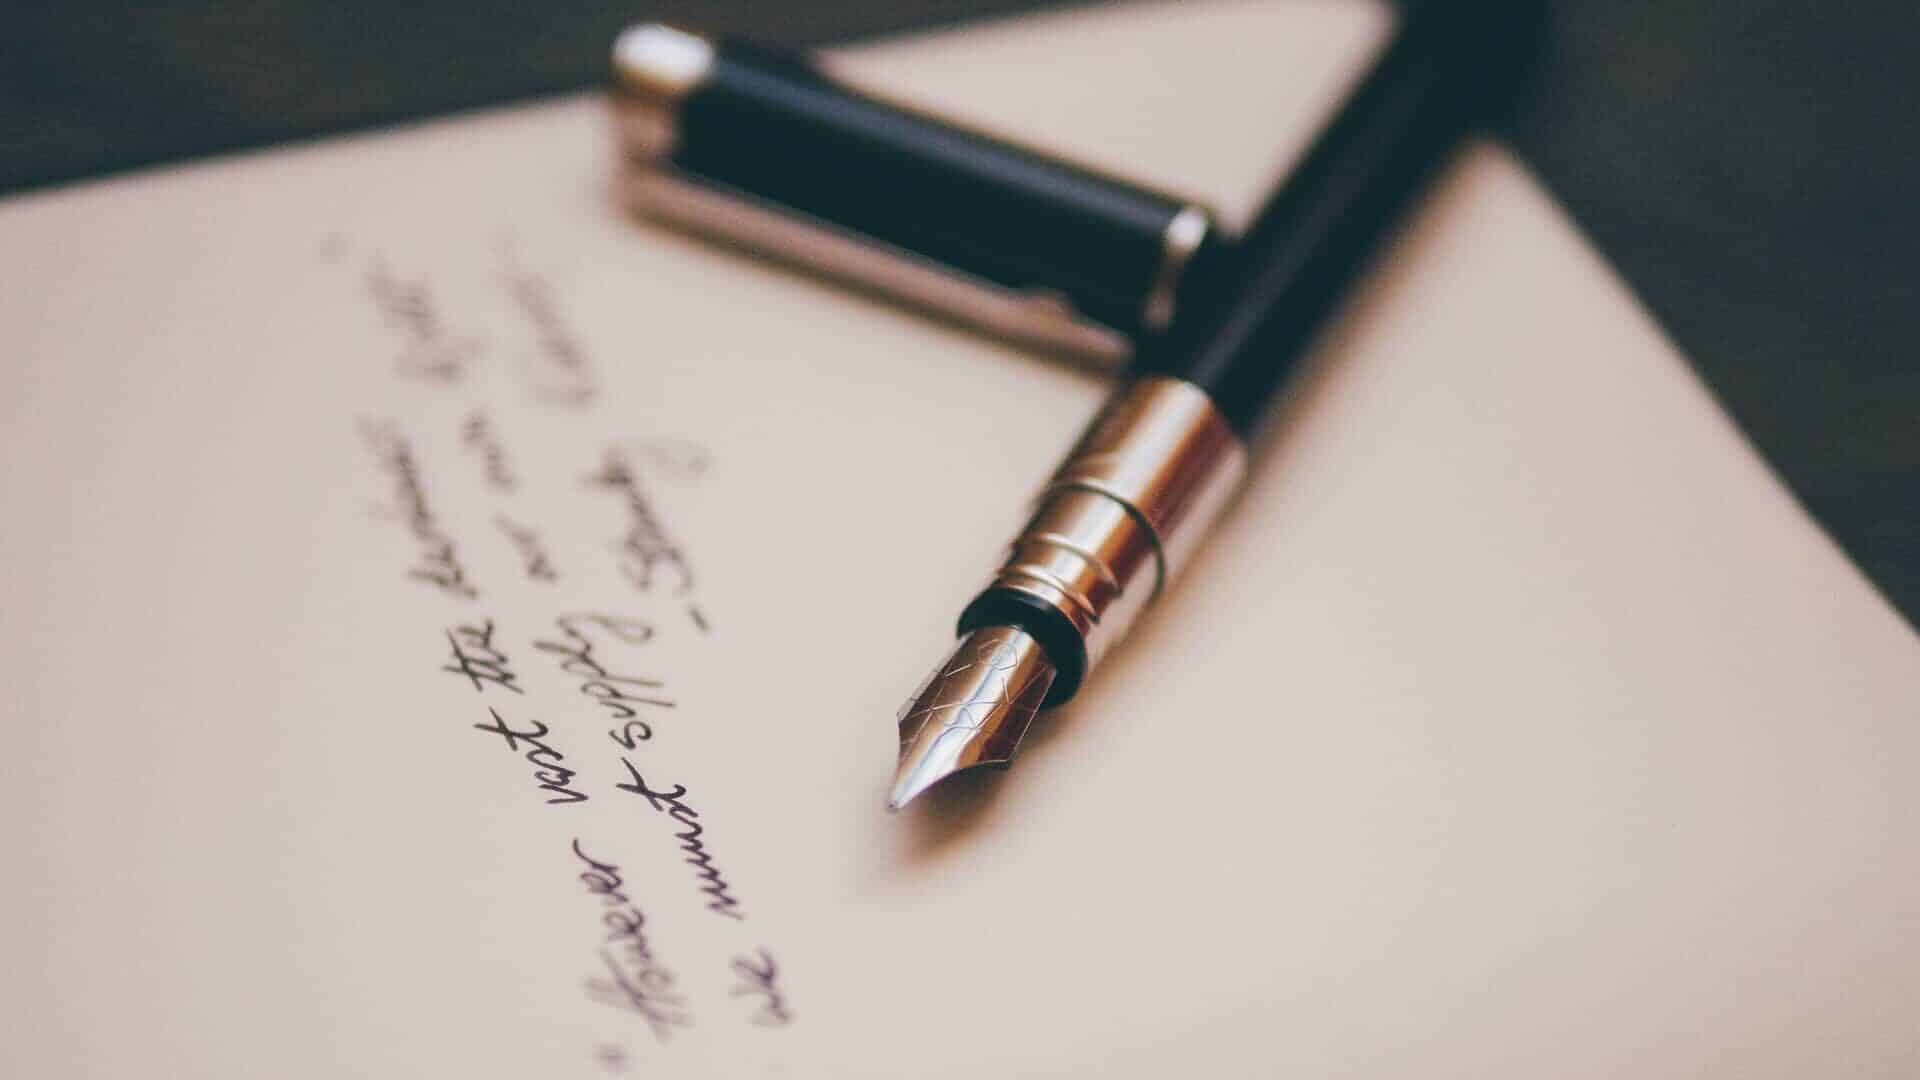 "However vast the darkness
we must supply our own light."
- Stanley